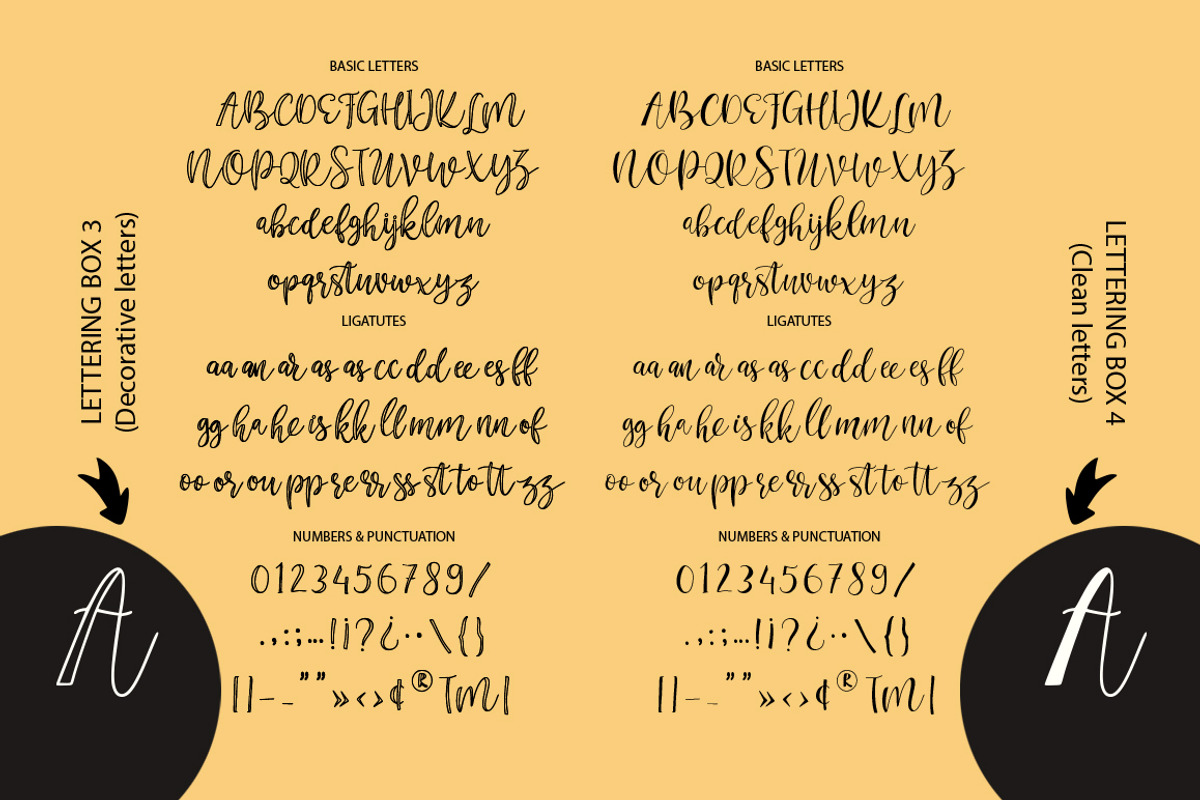 LETTERING BOX 3
(Decorative letters)
BASIC LETTERS
ABCDEFGHIJKLM
NOPQRSTUVWXYZ
abcdefghijklmn
opqrstuvwxyz
LIGATUTES
aa an ar as as cc dd ee es ff
gg ha he is kk ll mm nn of
oo or ou pp re rr ss st to tt zz
NUMBERS & PUNCTUATION
0123456789/
.,:;...!¡?¿··\{}
[]-_””»‹›¢®TM|
A
BASIC LETTERS
ABCDEFGHIJKLM
NOPQRSTUVWXYZ
abcdefghijklmn
opqrstuvwxyz
LIGATUTES
aa an ar as as cc dd ee es ff
gg ha he is kk ll mm nn of
oo or ou pp re rr ss st to tt zz
NUMBERS & PUNCTUATION
0123456789/
.,:;...!¡?¿··\{}
[]-_””»‹›¢®TM|
LETTERING BOX 4
(Clean letters)
A